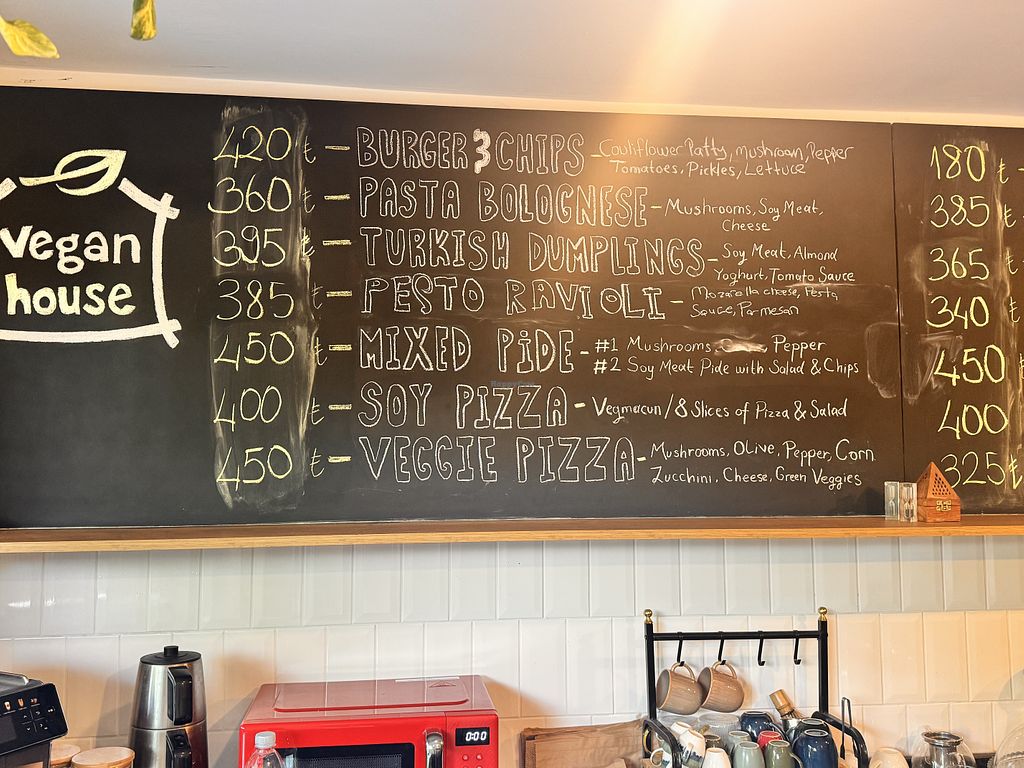 vegan
house
420 ₺ - BURGER & CHIPS - Couliflower Patty, Mushroom, Peper
Tomatoes, Pickles, Lettuce
360 - PASTA BOLOGNESE - Mushrooms, Soy Meat,
Cheese
395 ₺ - TURKISH DUMPLINGS - Soy Meat, Almond
Yoghurt, Tomato Sauce
385 ₺ - PESTO RAVIOLI - Mozarella cheese, Pesto
Sauce, Parmesan
450 ₺ - MIXED PiDE - #1 Mushrooms, Pepper
#2 Soy Meat Pide with Salad & Chips
400 ₺ - SOY PIZZA - Vegmacun/8 Slices of Pizza & Salad
450 ₺ - VEGGIE PIZZA - Mushrooms, Olive, Pepper, Corn
Zucchini, Cheese, Green Veggies
180 ₺
385 ₺
365 ₺
340 ₺
450 ₺
400
325 ₺
0:00